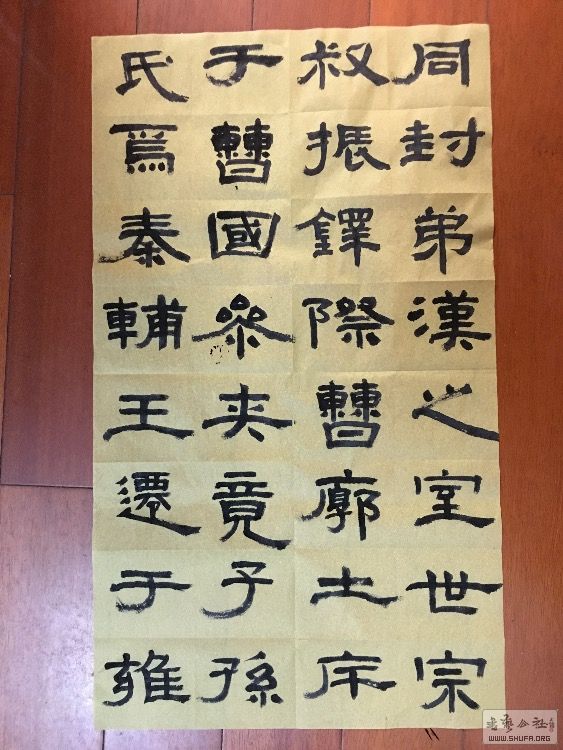 同封弟漢之室世宗
叔振鐸際曹廓土斥
于曹國參夾竟子孫
氏焉秦漢輔王遷于雍
書藝公社
WWW.SHUFA.ORG